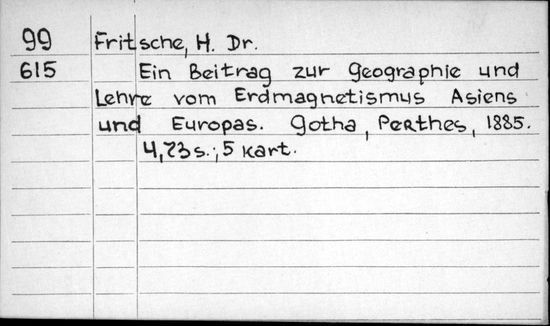 99 Fritsche, H. Dr.
615 Ein Beitrag zur Geographie und
Lehre vom Erdmagnetismus Asiens
und Europas. Gotha, Perthes, 1885.
4,73 s.; 5 kart.